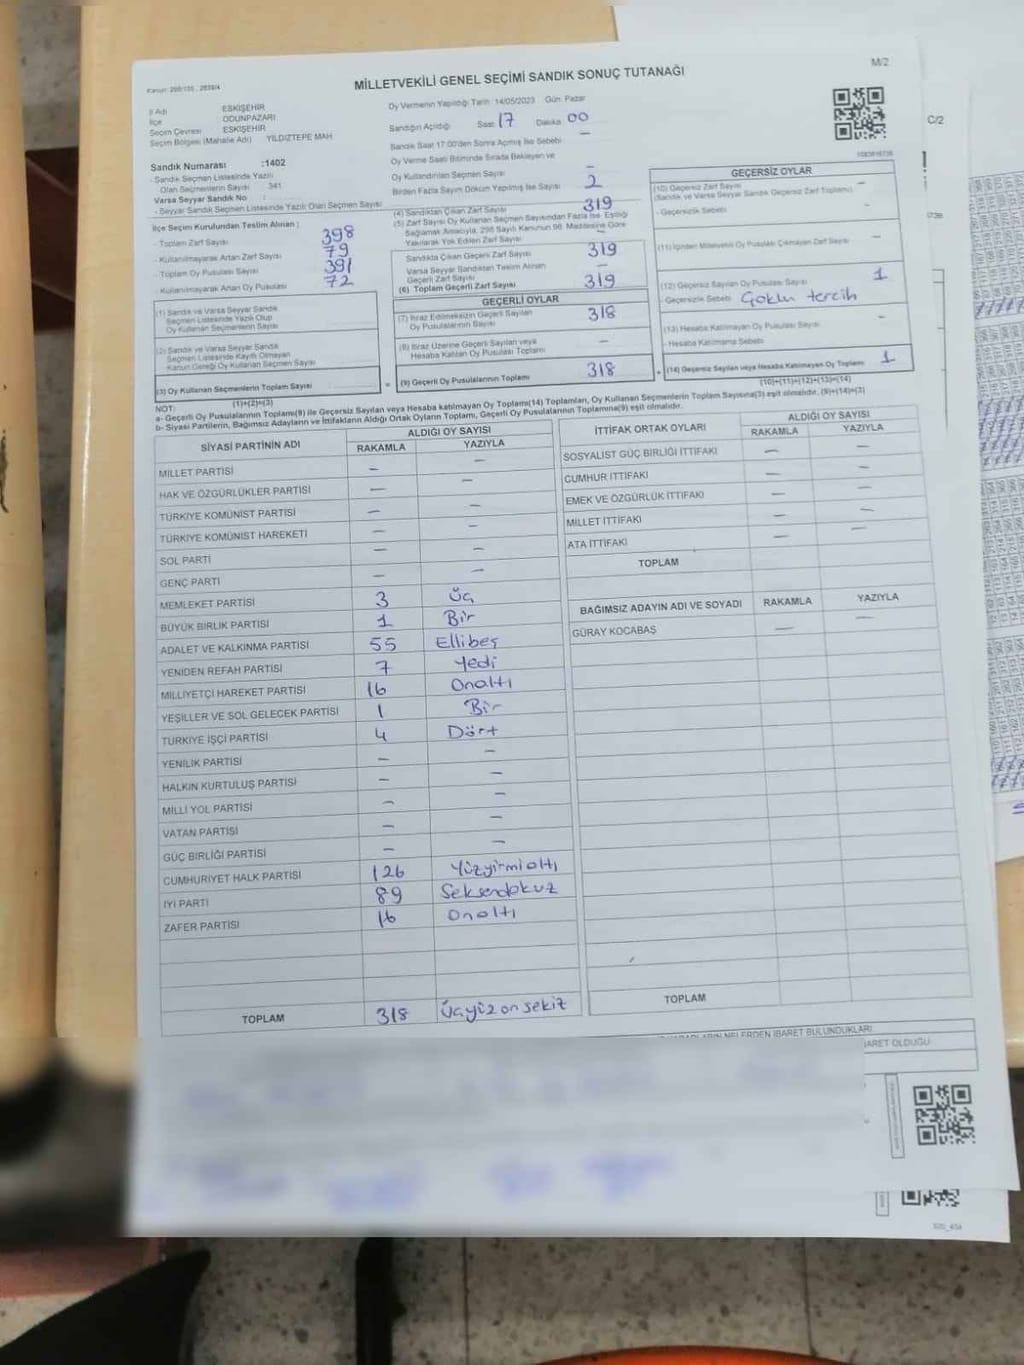 MİLLETVEKİLİ GENEL SEÇİMİ SANDIK SONUÇ TUTANAĞI
M/2
C/2
İl Adı ESKİŞEHİR
İlçe ODUNPAZARI
Seçim Çevresi ESKİŞEHİR
Seçim Bölgesi (Mahalle Adı) YILDIZTEPE MAH
Sandık Numarası :1402
- Sandık Seçmen Listesinde Yazılı
Olan Seçmenlerin Sayısı 341
Varsa Seyyar Sandık No :
- Seyyar Sandık Seçmen Listesinde Yazılı Olan Seçmen Sayısı
Oy Vermenin Yapıldığı Tarih: 14/05/2023 Gün: Pazar
Sandığın Açıldığı Saat 17 Dakika 00
Sandık Saat 17:00'den Sonra Açılmış İse Sebebi —
Oy Verme Saati Bitiminde Sırada Bekleyen ve
Oy Kullandırılan Seçmen Sayısı —
Birden Fazla Sayım Döküm Yapılmış İse Sayısı 2
İlçe Seçim Kurulundan Teslim Alınan ;
- Toplam Zarf Sayısı 398
- Kullanılmayarak Artan Zarf Sayısı 79
- Toplam Oy Pusulası Sayısı 391
- Kullanılmayarak Artan Oy Pusulası 72
(1) Sandık ve Varsa Seyyar Sandık
Seçmen Listesinde Yazılı Olup
Oy Kullanan Seçmenlerin Sayısı
(2) Sandık ve Varsa Seyyar Sandık
Seçmen Listesinde Kayıtlı Olmayan
Kanun Gereği Oy Kullanan Seçmen Sayısı
(3) Oy Kullanan Seçmenlerin Toplam Sayısı
(1)+(2)=(3)
(4) Sandıktan Çıkan Zarf Sayısı 319
(5) Zarf Sayısı Oy Kullanan Seçmen Sayısından Fazla İse, Eşitliği
Sağlamak Amacıyla, 298 Sayılı Kanunun 98. Maddesine Göre
Yakılarak Yok Edilen Zarf Sayısı —
Sandıkta Çıkan Geçerli Zarf Sayısı 319
Varsa Seyyar Sandıktan Teslim Alınan
Geçerli Zarf Sayısı —
(6) Toplam Geçerli Zarf Sayısı 319
GEÇERLİ OYLAR
(7) İtiraz Edilmeksizin Geçerli Sayılan
Oy Pusulalarının Sayısı 318
(8) İtiraz Üzerine Geçerli Sayılan veya
Hesaba Katılan Oy Pusulası Toplamı —
(9) Geçerli Oy Pusulalarının Toplamı 318
GEÇERSİZ OYLAR
(10) Geçersiz Zarf Sayısı —
(Sandık ve Varsa Seyyar Sandık Geçersiz Zarf Toplamı)
- Geçersizlik Sebebi
(11) İçinden Milletvekili Oy Pusulası Çıkmayan Zarf Sayısı —
(12) Geçersiz Sayılan Oy Pusulası Sayısı 1
- Geçersizlik Sebebi Çoklu tercih
(13) Hesaba Katılmayan Oy Pusulası Sayısı —
- Hesaba Katılmama Sebebi
(14) Geçersiz Sayılan veya Hesaba Katılmayan Oy Toplamı 1
(10)+(11)+(12)+(13)=(14)
NOT:
a- Geçerli Oy Pusulalarının Toplamı(9) ile Geçersiz Sayılan veya Hesaba katılmayan Oy Toplamı(14) Toplamları, Oy Kullanan Seçmenlerin Toplam Sayısına(3) eşit olmalıdır. (9)+(14)=(3)
b- Siyasi Partilerin, Bağımsız Adayların ve İttifakların Aldığı Ortak Oyların Toplamı, Geçerli Oy Pusulalarının Toplamına(9) eşit olmalıdır.
SİYASİ PARTİNİN ADI ALDIĞI OY SAYISI
RAKAMLA YAZIYLA
MİLLET PARTİSİ — —
HAK VE ÖZGÜRLÜKLER PARTİSİ — —
TÜRKİYE KOMÜNİST PARTİSİ — —
TÜRKİYE KOMÜNİST HAREKETİ — —
SOL PARTİ — —
GENÇ PARTİ — —
MEMLEKET PARTİSİ 3 Üç
BÜYÜK BİRLİK PARTİSİ 1 Bir
ADALET VE KALKINMA PARTİSİ 55 Ellibeş
YENİDEN REFAH PARTİSİ 7 Yedi
MİLLİYETÇİ HAREKET PARTİSİ 16 Onaltı
YEŞİLLER VE SOL GELECEK PARTİSİ 1 Bir
TÜRKİYE İŞÇİ PARTİSİ 4 Dört
YENİLİK PARTİSİ — —
HALKIN KURTULUŞ PARTİSİ — —
MİLLİ YOL PARTİSİ — —
VATAN PARTİSİ — —
GÜÇ BİRLİĞİ PARTİSİ — —
CUMHURİYET HALK PARTİSİ 126 Yüzyirmialtı
İYİ PARTİ 89 Seksendokuz
ZAFER PARTİSİ 16 Onaltı
TOPLAM 318 Üçyüzonsekiz
İTTİFAK ORTAK OYLARI ALDIĞI OY SAYISI
RAKAMLA YAZIYLA
SOSYALİST GÜÇ BİRLİĞİ İTTİFAKI — —
CUMHUR İTTİFAKI — —
EMEK VE ÖZGÜRLÜK İTTİFAKI — —
MİLLET İTTİFAKI — —
ATA İTTİFAKI — —
TOPLAM
BAĞIMSIZ ADAYIN ADI VE SOYADI RAKAMLA YAZIYLA
GÜRAY KOCABAŞ — —
TOPLAM
NELERDEN İBARET BULUNDUKLARI
OLDUĞU